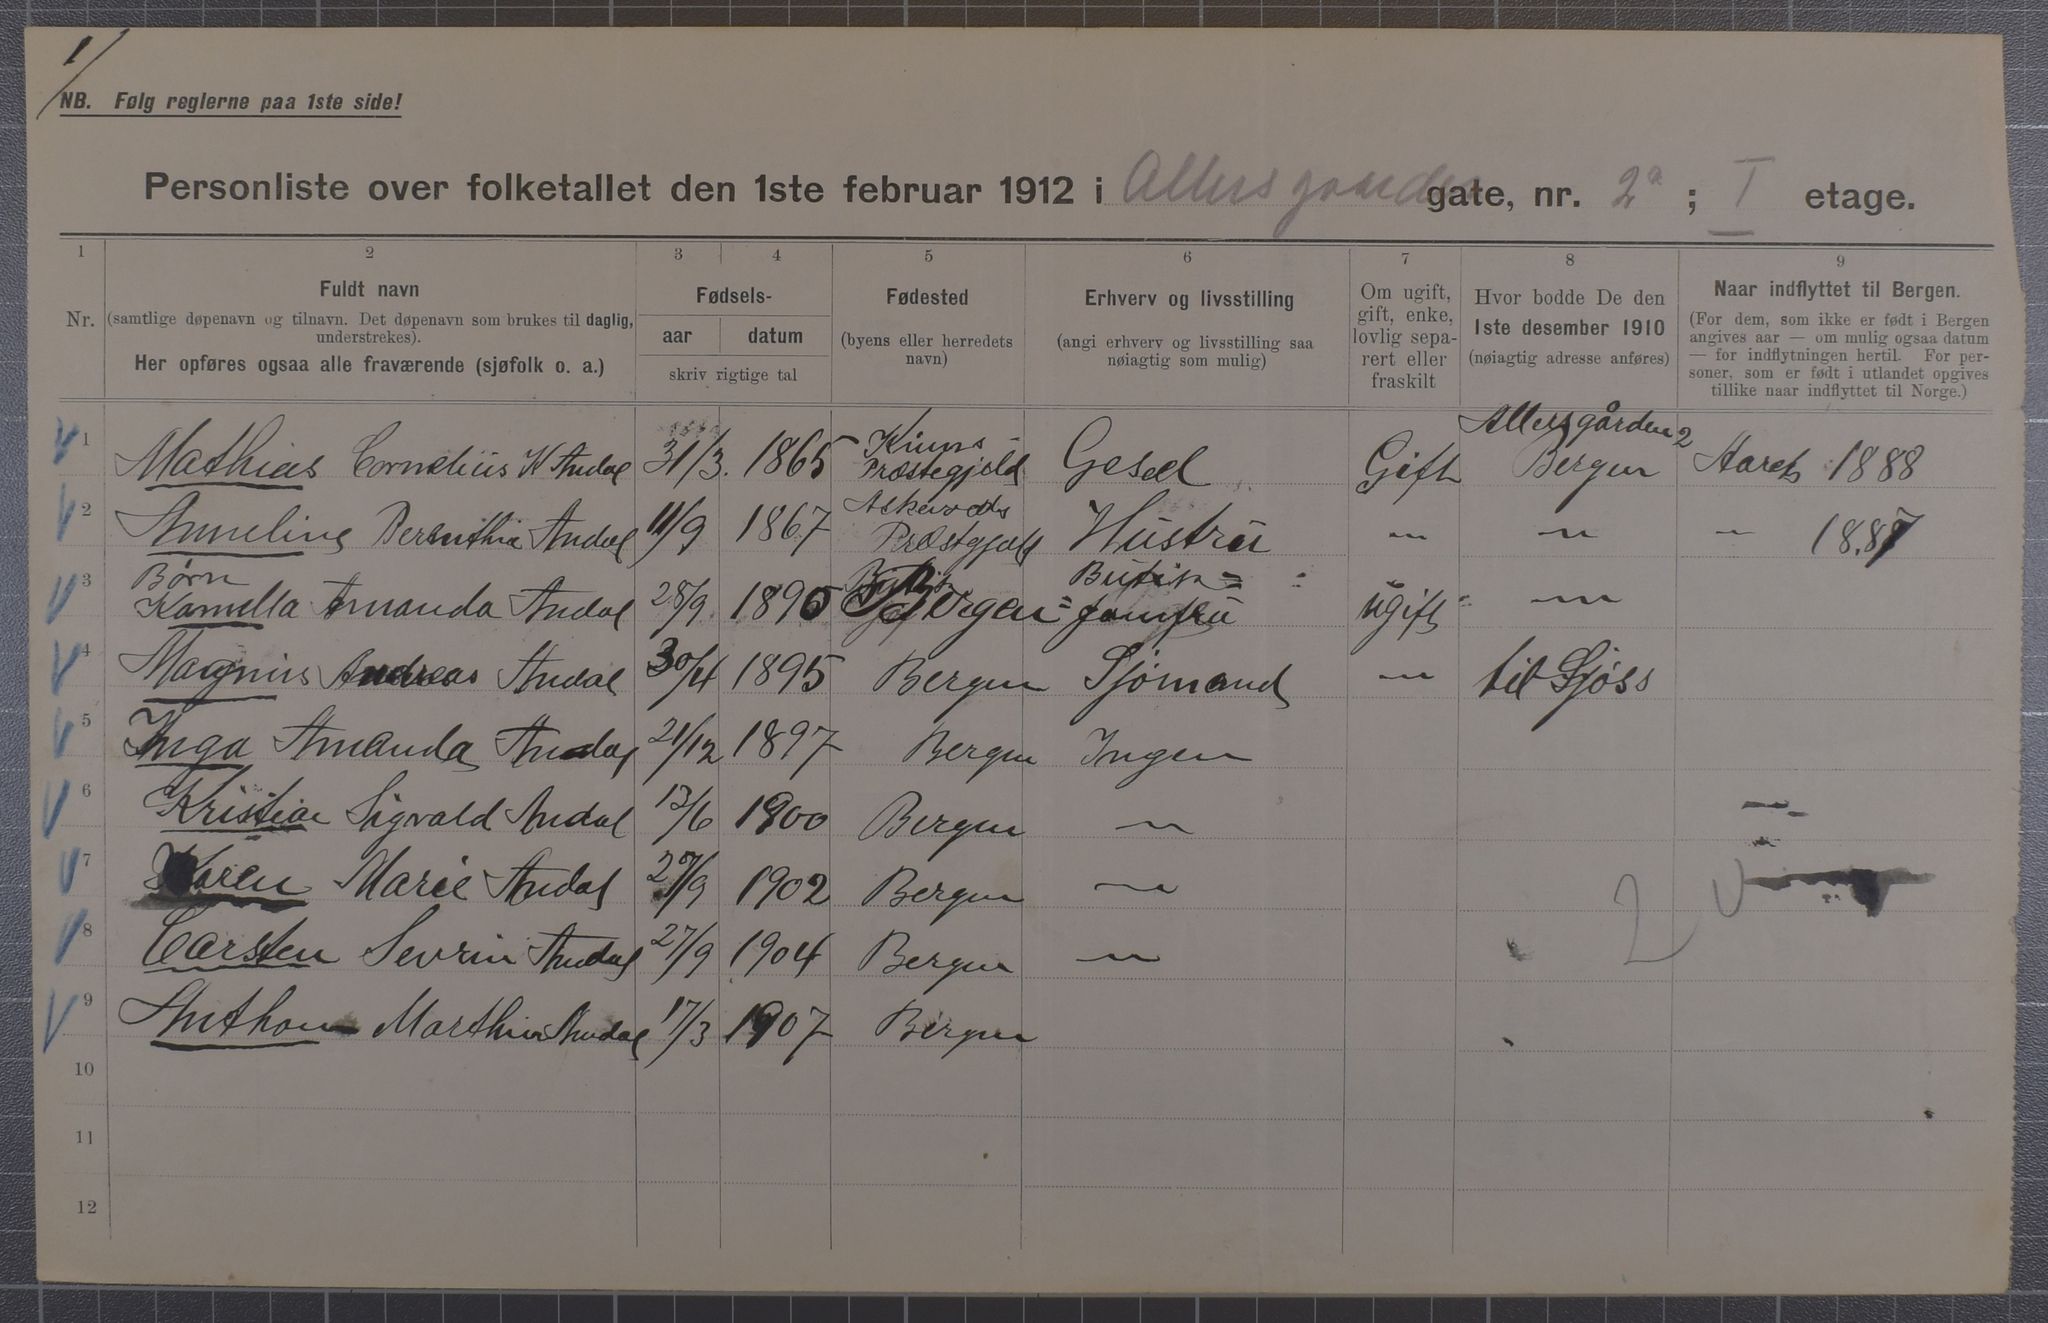 1/
NB. Følg reglerne paa 1ste side!
Personliste over folketallet den 1ste februar 1912 i Allersgaarden gate, nr. 2a; I etage.
1 2 3 4 5 6 7 8 9
Nr.
Fuldt navn
(samtlige døpenavn og tilnavn. Det døpenavn som brukes til daglig, understrekes).
Her opføres ogsaa alle fraværende (sjøfolk o. a.)
Fødsels-
aar datum
skriv rigtige tal
Fødested
(byens eller herredets navn)
Erhverv og livsstilling
(angi erhverv og livsstilling saa nøiagtig som mulig)
Om ugift, gift, enke, lovlig separert eller fraskilt
Hvor bodde De den
1ste desember 1910
(nøiagtig adresse anføres)
Naar indflyttet til Bergen.
(For dem, som ikke er født i Bergen
angives aar — om mulig ogsaa datum
— for indflytningen hertil. For per-
soner, som er født i utlandet opgives
tillike naar indflyttet til Norge.)
1 Mathias Cornelius K Andal 31/3. 1865 Kinns Præstegjeld Gesel Gift Allersgården 2 Bergen Aaret 1888
2 Anneline Andal 11/9 1867 Askevolds Præstgjeld Hustru — — — 1887
Børn
3 Kamilla Amanda Andal 28/9 1890 Bergen Butik= jomfru ugift —
4 Magnus Andreas Andal 30/4 1895 Bergen Sjömand — til Sjöss
5 Inga Amanda Andal 21/12 1897 Bergen Ingen
6 Kristian Sigvald Andal 13/6 1900 Bergen —
7 Karen Marie Andal 27/9 1902 Bergen —
8 Carsten Sevrin Andal 27/9 1904 Bergen —
9 Anthon Marthin Andal 17/3 1907 Bergen
10
11
12
2